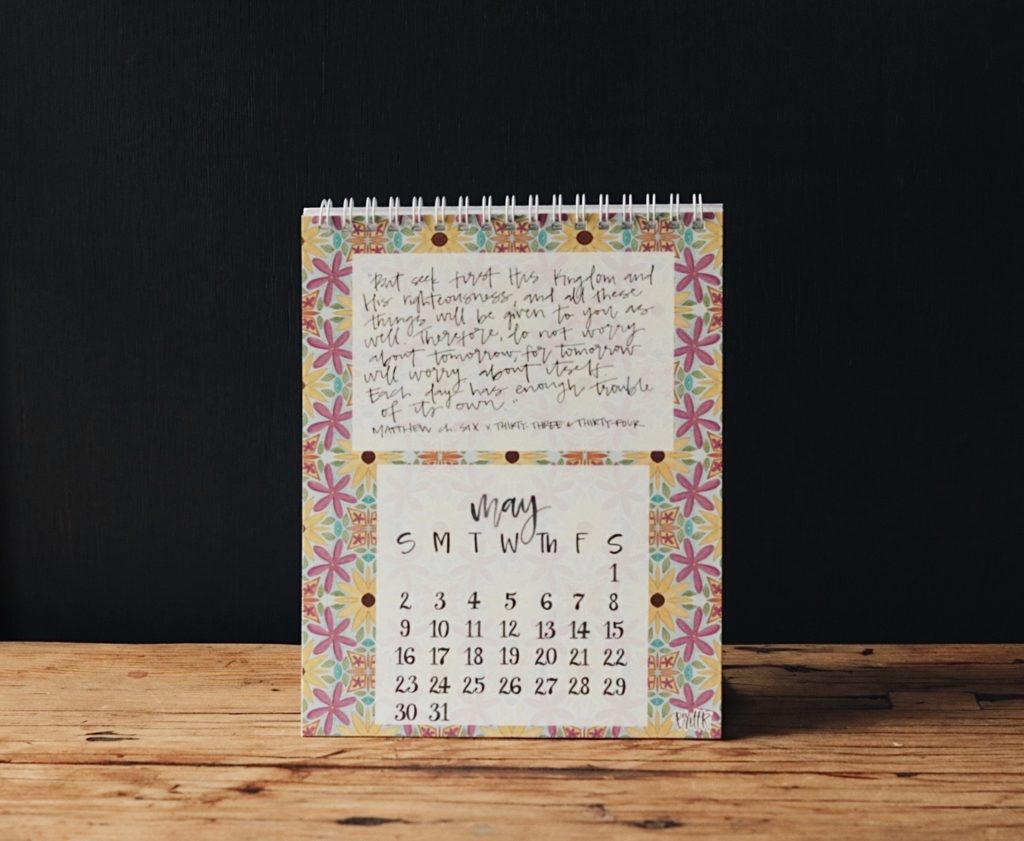 "But seek first His Kingdom and
His righteousness, and all these
things will be given to you as
well. Therefore, do not worry
about tomorrow, for tomorrow
will worry about itself.
Each day has enough trouble
of its own."
MATTHEW ch. SIX v THIRTY-THREE & THIRTY-FOUR
may
S M T W Th F S
1
2 3 4 5 6 7 8
9 10 11 12 13 14 15
16 17 18 19 20 21 22
23 24 25 26 27 28 29
30 31